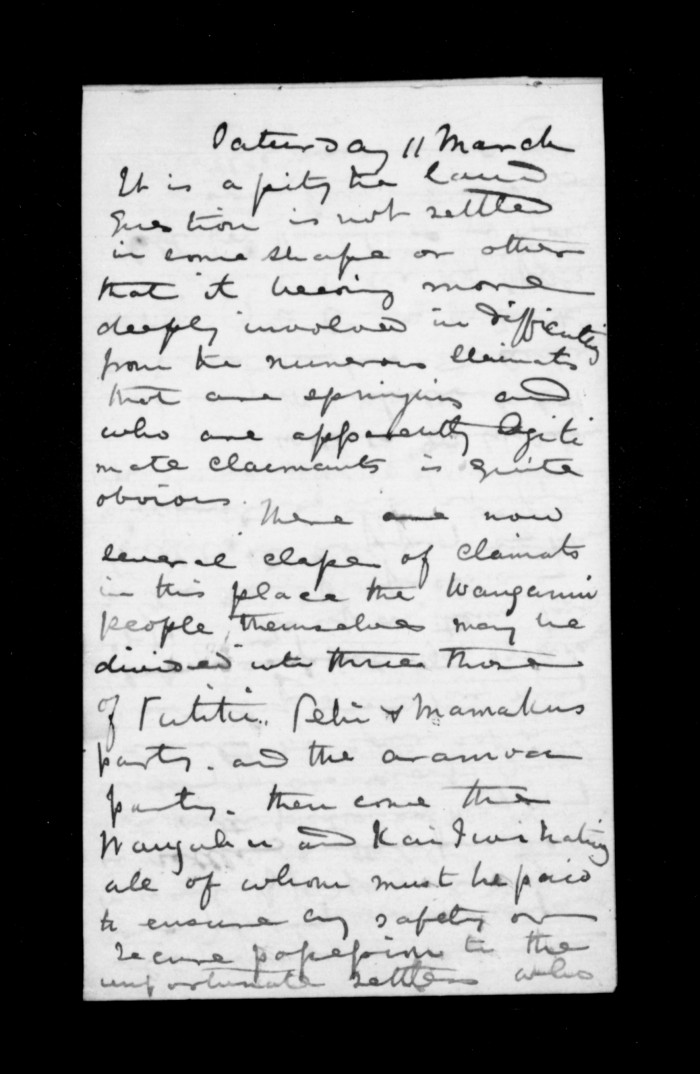 Saturday 11 March
It is a pity the land
question is not settled
in some shape or other
that it becoming more
deeply involved in difficulties
from the numerous claimats
that are springing and
who are apparently legiti
mate claemants is quite
obvious. There are now
several classes of claimats
in this place the Wanganui
people themselves may be
divided into three those
of Tutitii. Pehi & Mamakus
party. and the aramoa
party. then come the
Wangaehu and Kai Iwi natives
all of whom must be paid
to ensure any safety or
secure possession to the
unfortunate settlers who